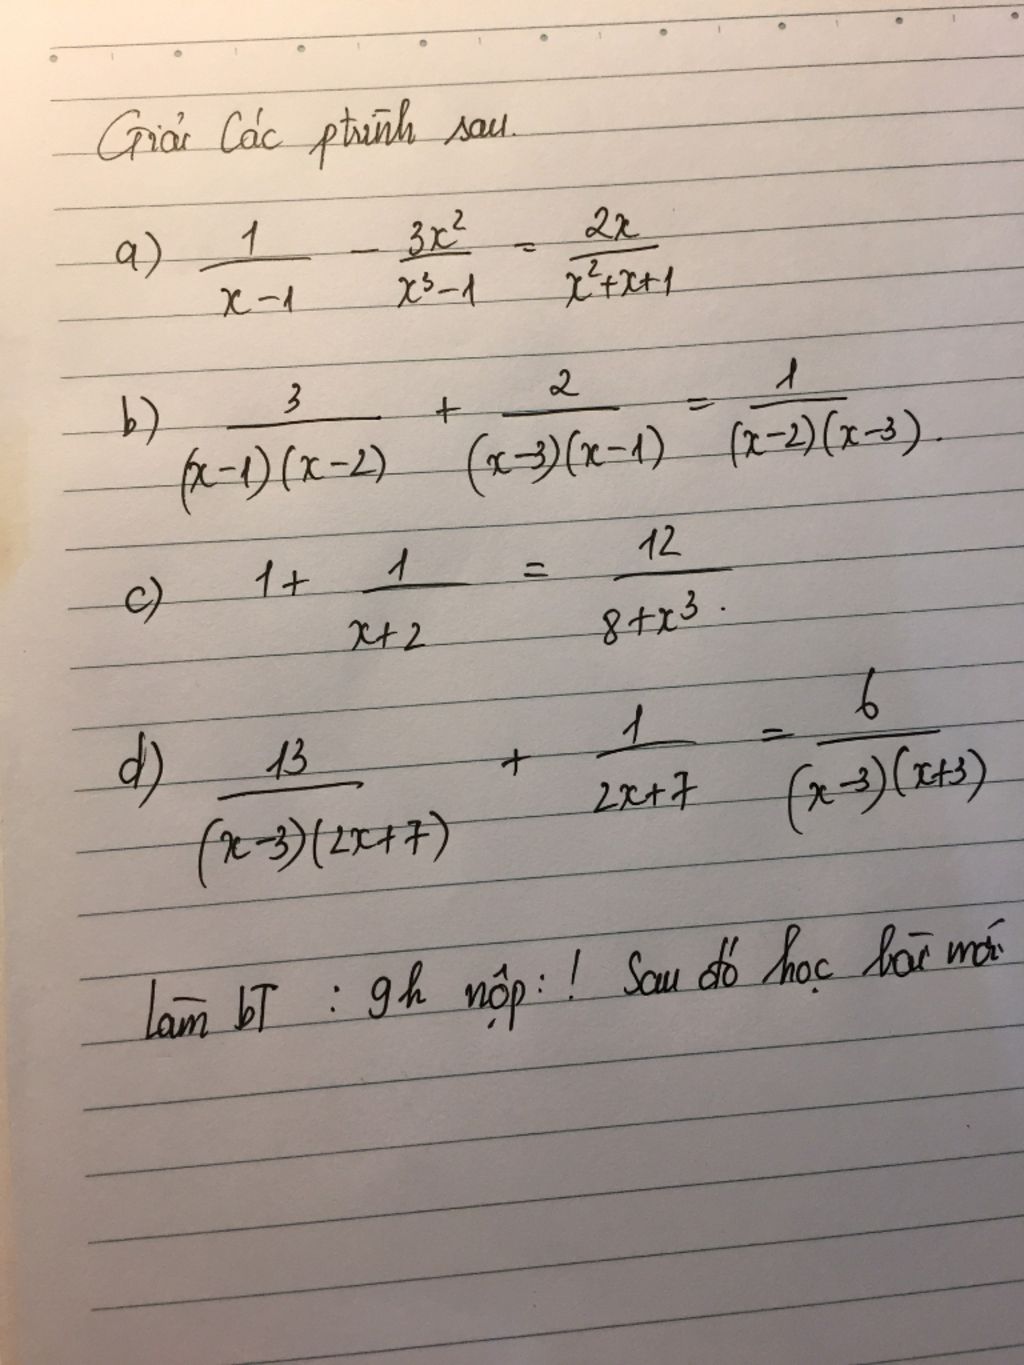 Giải Các ptrình sau.
a) 1/(x-1) - 3x²/(x³-1) = 2x/(x²+x+1)
b) 3/((x-1)(x-2)) + 2/((x-3)(x-1)) = 1/((x-2)(x-3)).
c) 1 + 1/(x+2) = 12/(8+x³).
d) 13/((x-3)(2x+7)) + 1/(2x+7) = 6/((x-3)(x+3))
Làm bT : 9h nộp: ! Sau đó học bài mới